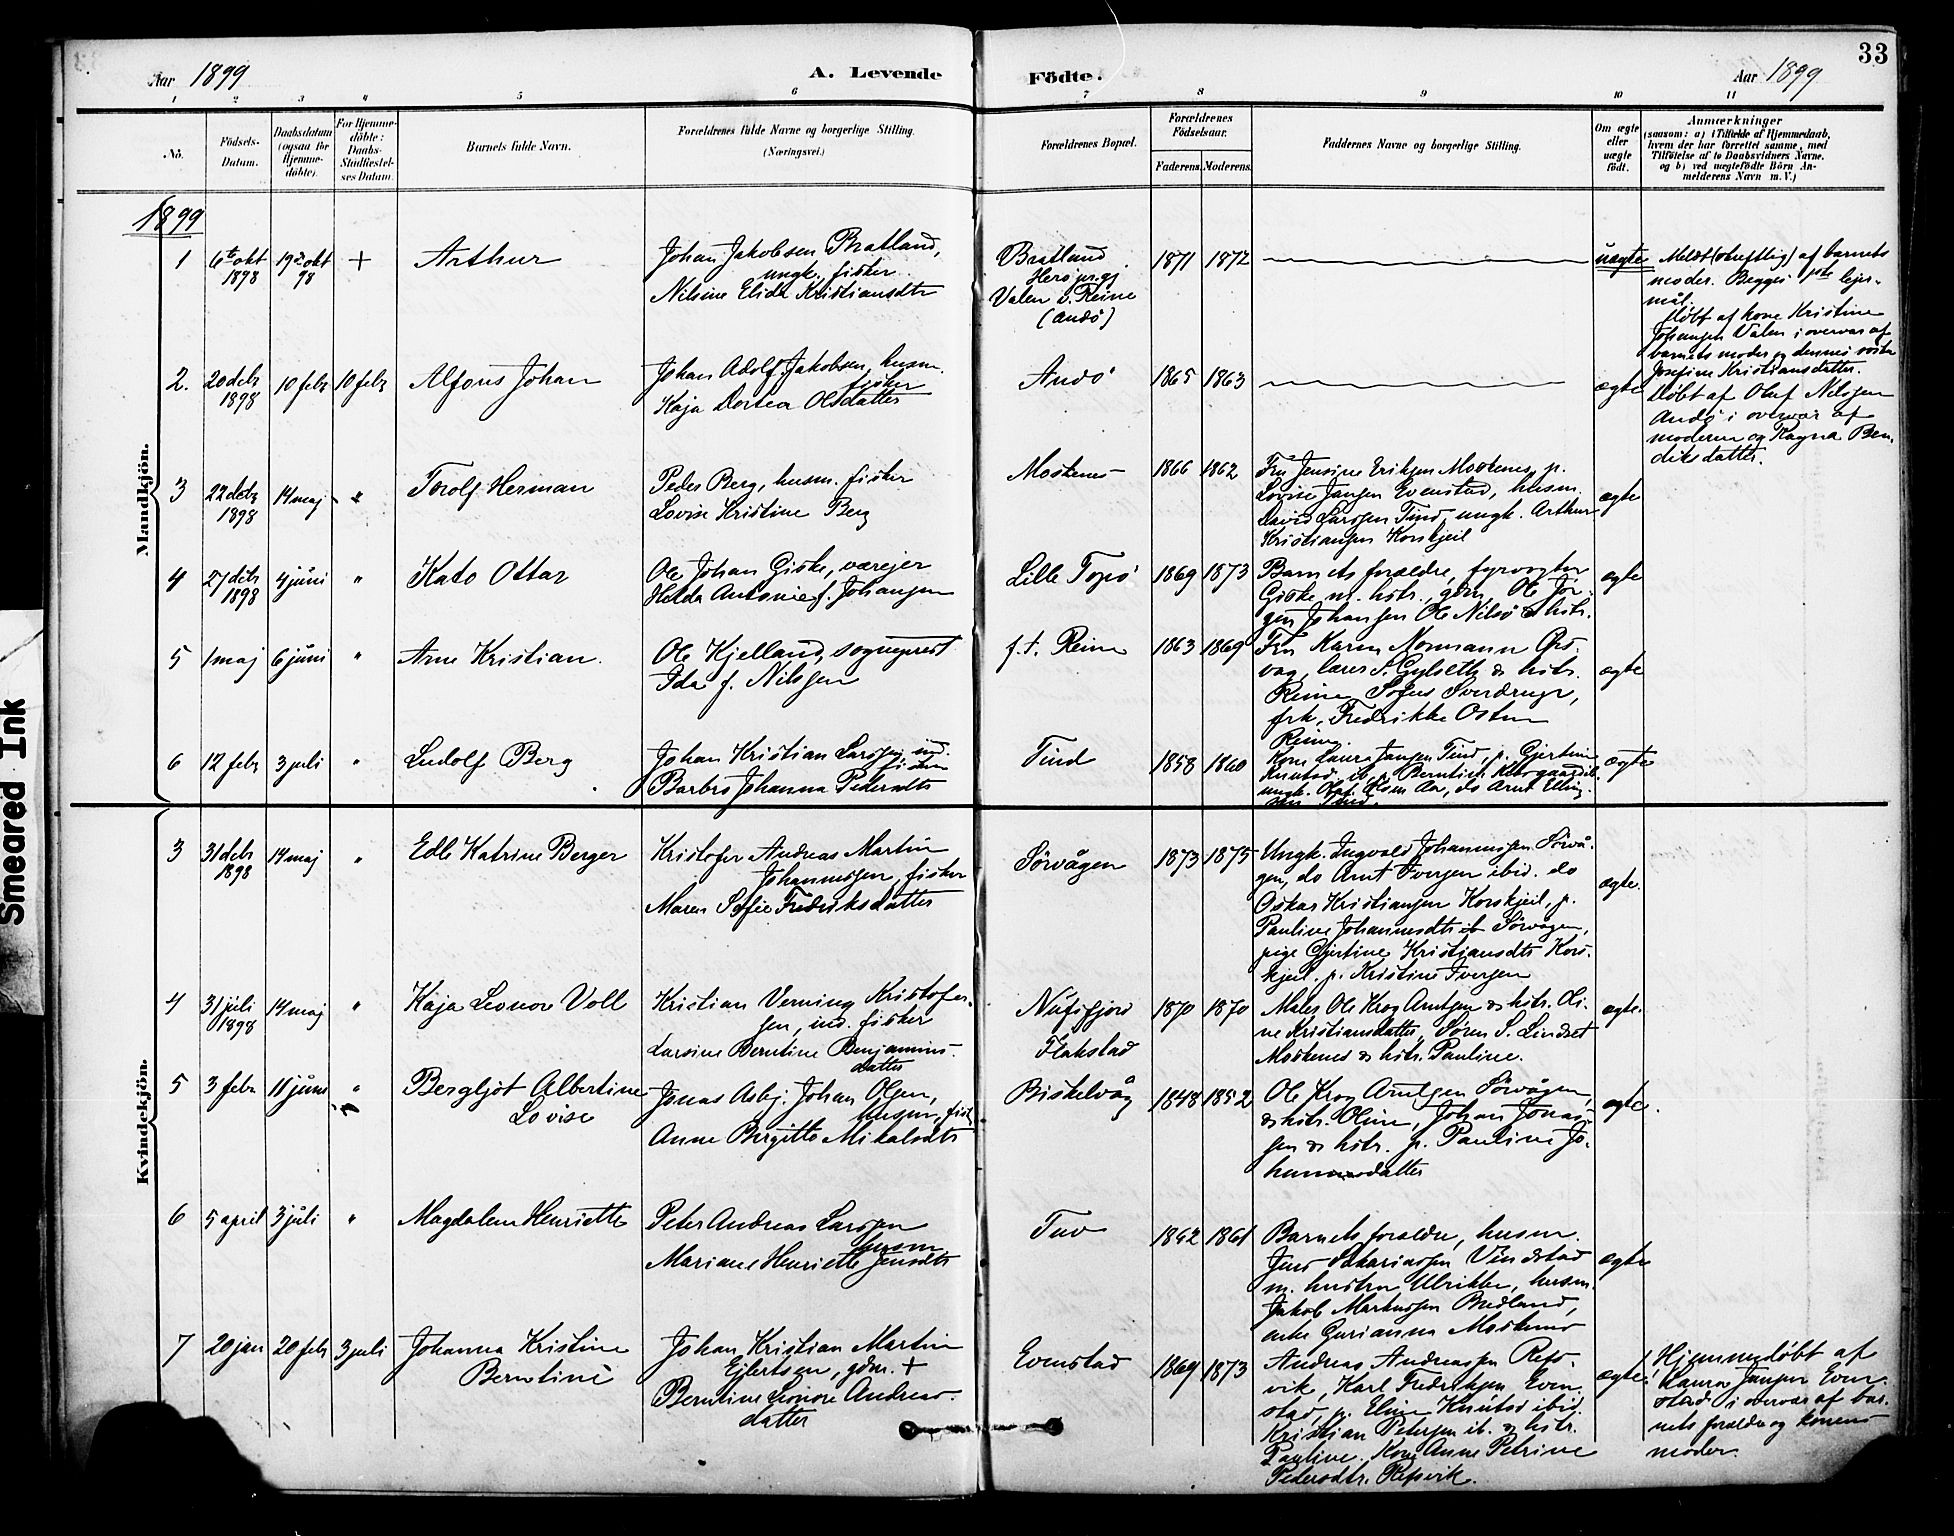 33
Aar 1899
A. Levende
Födte.
Aar 1899
1 2 3 4 5 6 7 8 9 10 11
No.
Födsels-
Datum.
Daabsdatum
(ogsaa for
Hjemme-
döbte).
For Hjemme-
döbte:
Daabs-
Stadfæstel-
ses Datum.
Barnets fulde Navn.
Forældrenes fulde Navne og borgerlige Stilling.
(Næringsvei.)
Forældrenes Bopæl.
Forældrenes
Födselsaar.
Faderens. Moderens.
Faddernes Navne og borgerlige Stilling.
Om ægte
eller
uægte
födt.
Anmærkninger
(saasom: a) i Tilfælde af Hjemmedaab,
hvem der har forrettet samme, med
Tilföielse af to Daabsvidners Navne.
og b) ved uægtefödte Börn An-
melderens Navn m. V.)
Mandkjön.
1899
1
6te okt
1898
19de okt
98
+
Arthur
Johan Jakobsen Bratland,
ungk. fisker
Nilsine Elida Kristiansdtr
Bratland
Herö prgj
Valen v. Reine
(Andö)
1871 1872
uægte
Meldt (skriftlig) af barnets
moder. Begges 1ste lejer-
mål.
Döbt af kone Kristine
Johansen Valen i overvær af
barnets moder og dennes söster
Josefine Kristiansdatter.
2.
20 decbr
1898
10 febr
10 febr
Alfons Johan
Johan Adolf Jakobsen, husm.
fisker
Kaja Dortea Olsdatter
Andö
1865 1863
ægte
Döbt af Oluf Nilssen
Andö i overvær af
moderen og Ragna Ben-
diksdatter.
3
22 decbr
1898
14 maj
"
Torolf Herman
Peder Berg, husm. fisker
Lovise Kristine Berg
Moskenes
1866 1862
Fru Jensine Eriksen Moskenes, p.
Lovise Jansen Evenstad, husm.
David Larssen Tind, ungk. Arthur
Kristiansen Korskjeil
ægte
4
27 decbr
1898
4 juni
"
Kato Ottar
Ole Johan Giske, værejer
Helda Antonie f. Johansen
Lille Topö
1869 1873
Barnets forældre, fyrvogter
Giske m. hstr., gdm. Ole Jör-
gen Johansen Ole Nilsö & hstr.
ægte
5
1 maj
6 juni
"
Arne Kristian.
Ole Kjelland, sogneprest
Ida f. Nilssen
f. t. Reine
1863 1869
Fru Karen Normann Örs-
vag, lærer S. Gylseth & hstr.
Reine, Sofus Sverdrup,
frk. Fredrikke Osten
Reine.
ægte
6
12 febr
3 juli
"
Ludolf Berg
Johan Kristian Larssen, ind.
fisker
Barbro Johanna Pedersdtr
Tind
1858 1860
Kone Laura Jansen Tind, p. Gjertine
Knutsd. ib., p. Berntine
ungk. Olaf Olsen Aa, do Arnt Elling-
sen Tind.
ægte
Kvindekjön.
3
31 decbr
1898
14 maj
"
Edle Katrine Berger
Kristofer Andreas Martin
Johannessen, fisker
Maren Sofie Fredriksdatter
Sörvågen
1873 1875
Ungk. Ingvald Johannessen Sörvå-
gen, do Arnt Iversen ibid. do
Oskar Kristiansen Korskjeil, p.
Pauline Johannesdtr Sörvågen,
pige Gjertine Kristiansdtr Kors-
kjeil, p. Kristine Iversen
ægte.
4
31 juli
1898
14 maj
"
Kaja Leonore Voll
Kristian Verning Kristofer-
sen, ind. fisker
Larsine Berntine Benjamins-
datter
Nufsfjord
Flakstad
1870 1870
Maler Ole Krog Arntsen & hstr. Oli-
ne Kristiansdatter, Sören S. Lindset
Moskenes & hstr. Pauline.
ægte.
5
3 febr
11 juni
"
Bergljot Albertine
Lovise
Jonas Asbj. Johan Olsen,
husm, fisk
Anne Birgitte Mikalsdtr
Biskelvåg
1848 1852
Ole Krog Arntsen Sörvågen,
& hstr. Oline, Johan Jonas-
sen & hstr. p. Pauline Jo-
hannesdatter
ægte.
6
5 april
3 juli
"
Magdalena Henriette
Peter Andreas Larssen
husm
Mariane Henriette Jensdtr
Tuv
1842 1861
Barnets forældre, husm.
Jens Sakariassen Vindstad
m. hustru Ulrikke, husm.
Jakob Markussen Bredland,
enke Gurianna Moskenes
ægte
7
20 jan
20 febr
3 juli
Johanna Kristine
Berntine
Johan Kristian Martin
Ejlertsen, gdm. +
Berntine Leonore Andreas-
datter
Evenstad
1869 1873
Andreas Andreassen Refs-
vik, Karl Fredriksen Even-
stad, p. Eline Knutsd ibid.
Kristian Petersen ib. & hstr.
Pauline, Kone Anne Petrine
Pedersdtr. Refsvik.
ægte
Hjemmedöbt af
Laura Jansen Even-
stad i overvær af bar-
nets forældre og konens
moder.
Smeared Ink